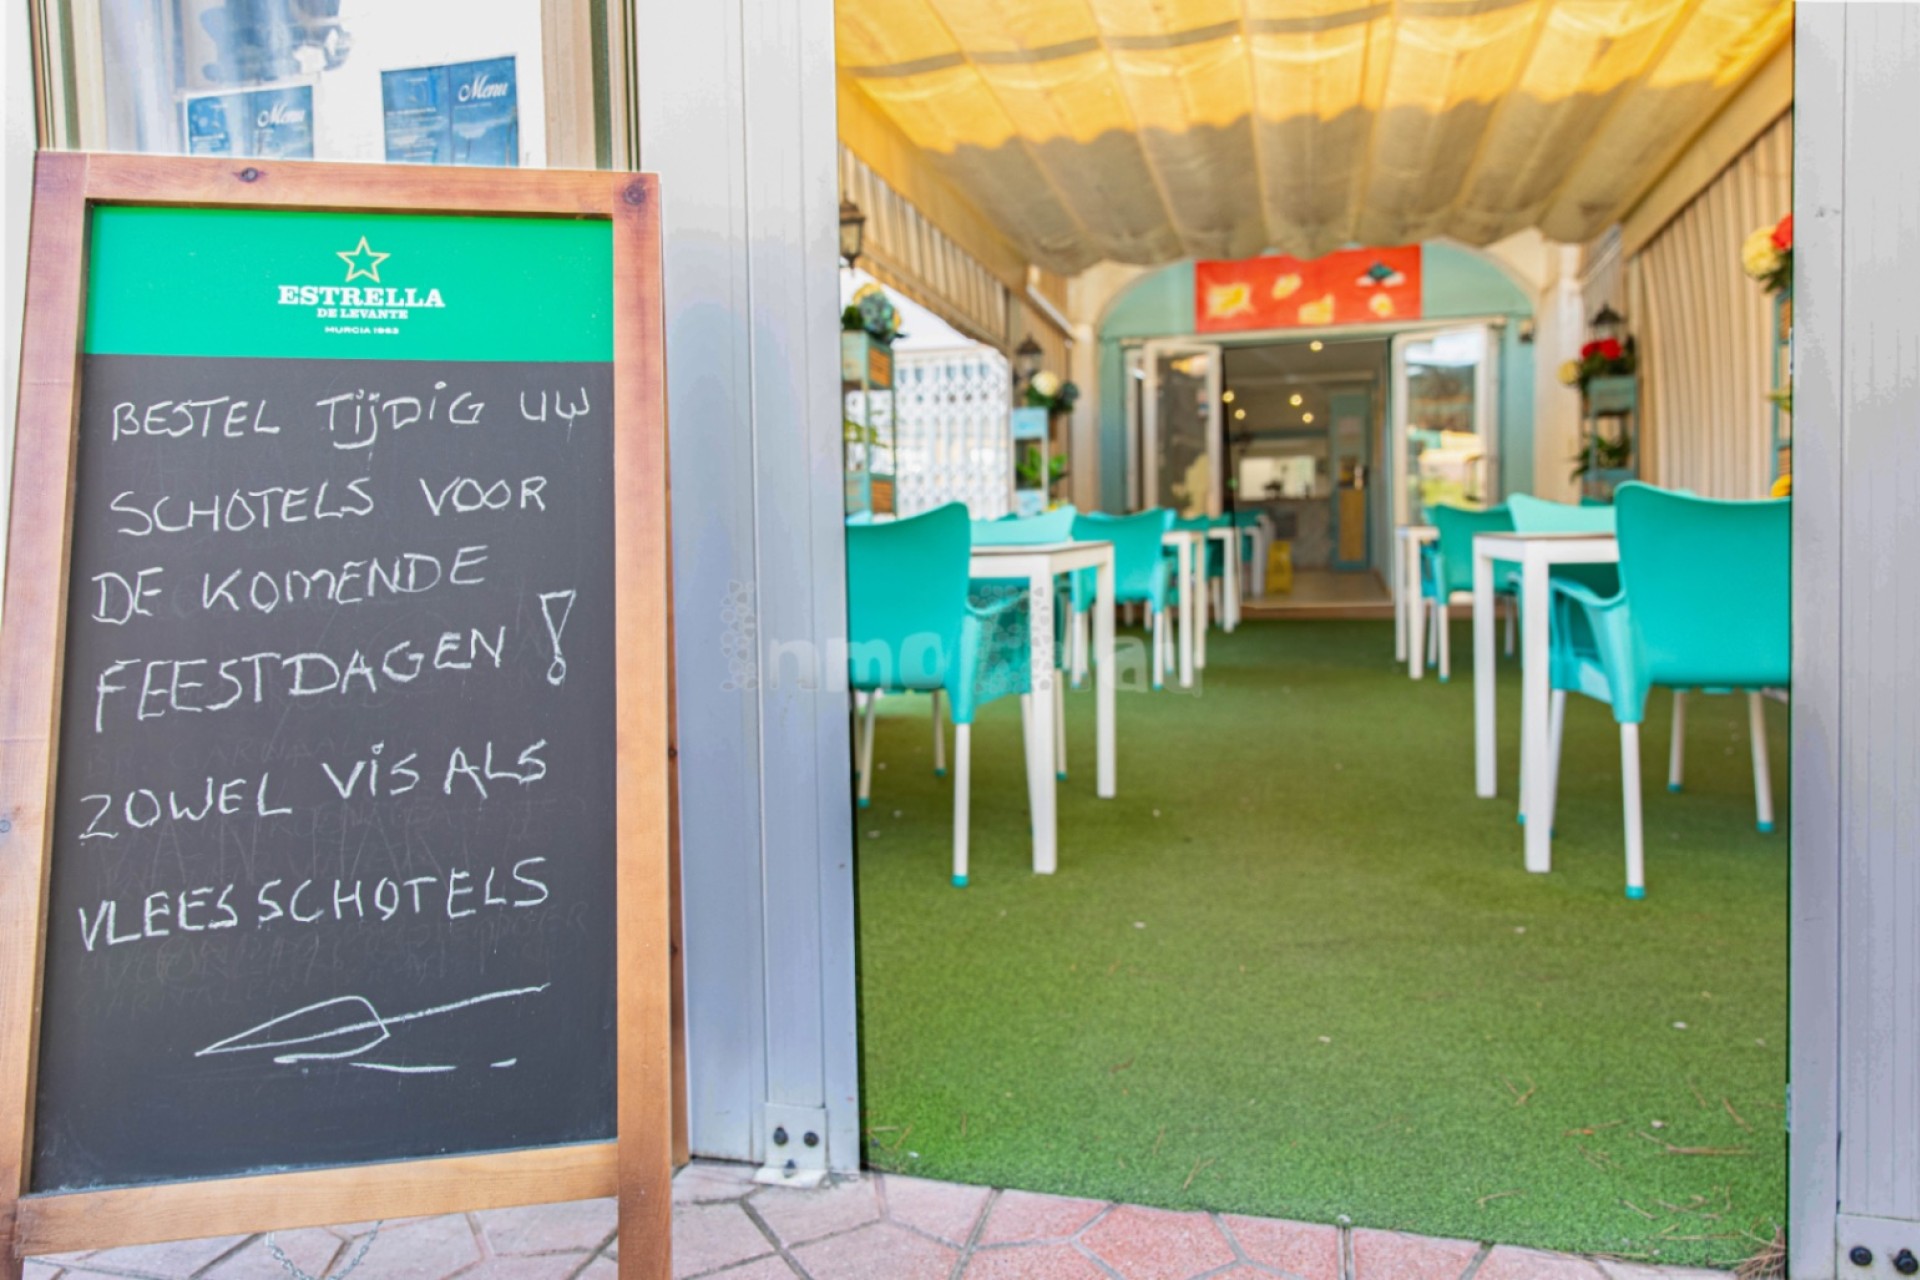 Menu
Menu
ESTRELLA
DE LEVANTE
MURCIA 1963
BESTEL TIJDIG UW
SCHOTELS VOOR
DE KOMENDE
FEESTDAGEN!
ZOWEL VIS ALS
VLEESSCHOTELS